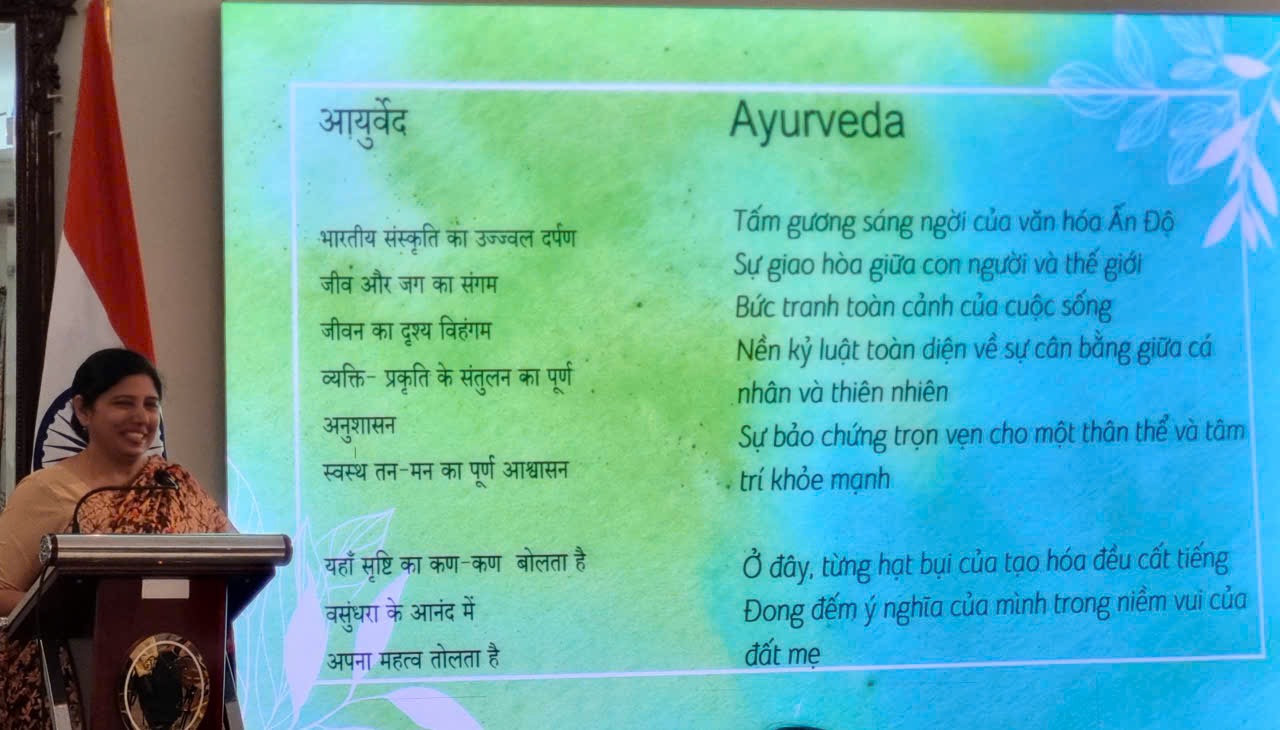 आयुर्वेद
भारतीय संस्कृति का उज्ज्वल दर्पण
जीव और जग का संगम
जीवन का दृश्य विहंगम
व्यक्ति- प्रकृति के संतुलन का पूर्ण
अनुशासन
स्वस्थ तन-मन का पूर्ण आश्वासन
यहाँ सृष्टि का कण-कण बोलता है
वसुंधरा के आनंद में
अपना महत्व तोलता है
Ayurveda
Tấm gương sáng ngời của văn hóa Ấn Độ
Sự giao hòa giữa con người và thế giới
Bức tranh toàn cảnh của cuộc sống
Nền kỷ luật toàn diện về sự cân bằng giữa cá
nhân và thiên nhiên
Sự bảo chứng trọn vẹn cho một thân thể và tâm
trí khỏe mạnh
Ở đây, từng hạt bụi của tạo hóa đều cất tiếng
Đong đếm ý nghĩa của mình trong niềm vui của
đất mẹ